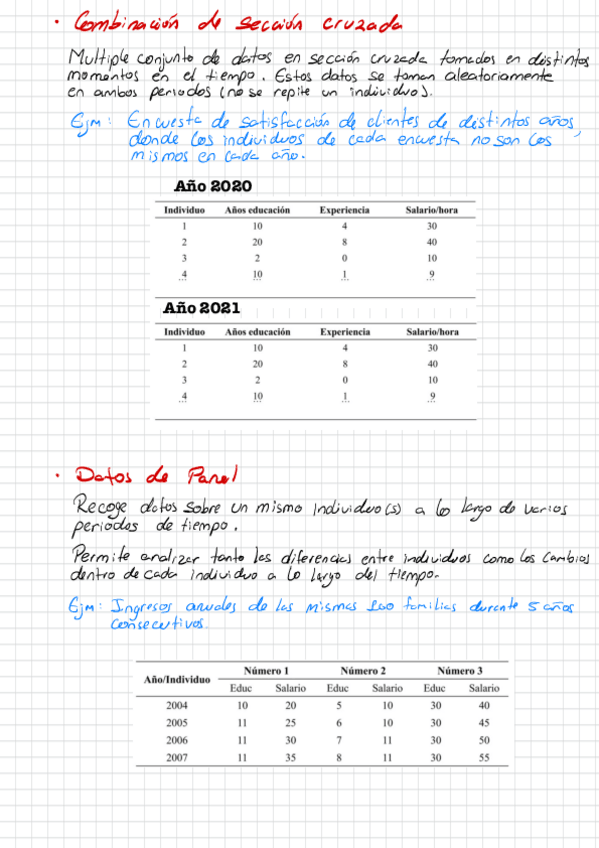 · Combinación de sección cruzada
Multiple conjunto de datos en sección cruzada tomados en distintos
momentos en el tiempo. Estos datos se toman aleatoriamente
en ambos periodos (no se repite un individuo).
Ejm: Encuesta de satisfacción de clientes de distintos años,
donde los individuos de cada encuesta no son los
mismos en cada año.
Año 2020
Individuo Años educación Experiencia Salario/hora
1 10 4 30
2 20 8 40
3 2 0 10
4 10 1 9
... ... ... ...
Año 2021
Individuo Años educación Experiencia Salario/hora
1 10 4 30
2 20 8 40
3 2 0 10
4 10 1 9
... ... ... ...
· Datos de Panel
Recoge datos sobre un mismo individuo(s) a lo largo de varios
periodos de tiempo.
Permite analizar tanto las diferencias entre individuos como los cambios
dentro de cada individuo a lo largo del tiempo.
Ejm: Ingresos anuales de las mismas 100 familias durante 5 años
consecutivos.
Año/Individuo Número 1 Número 2 Número 3
Educ Salario Educ Salario Educ Salario
2004 10 20 5 10 30 40
2005 11 25 6 10 30 45
2006 11 30 7 11 30 50
2007 11 35 8 11 30 55